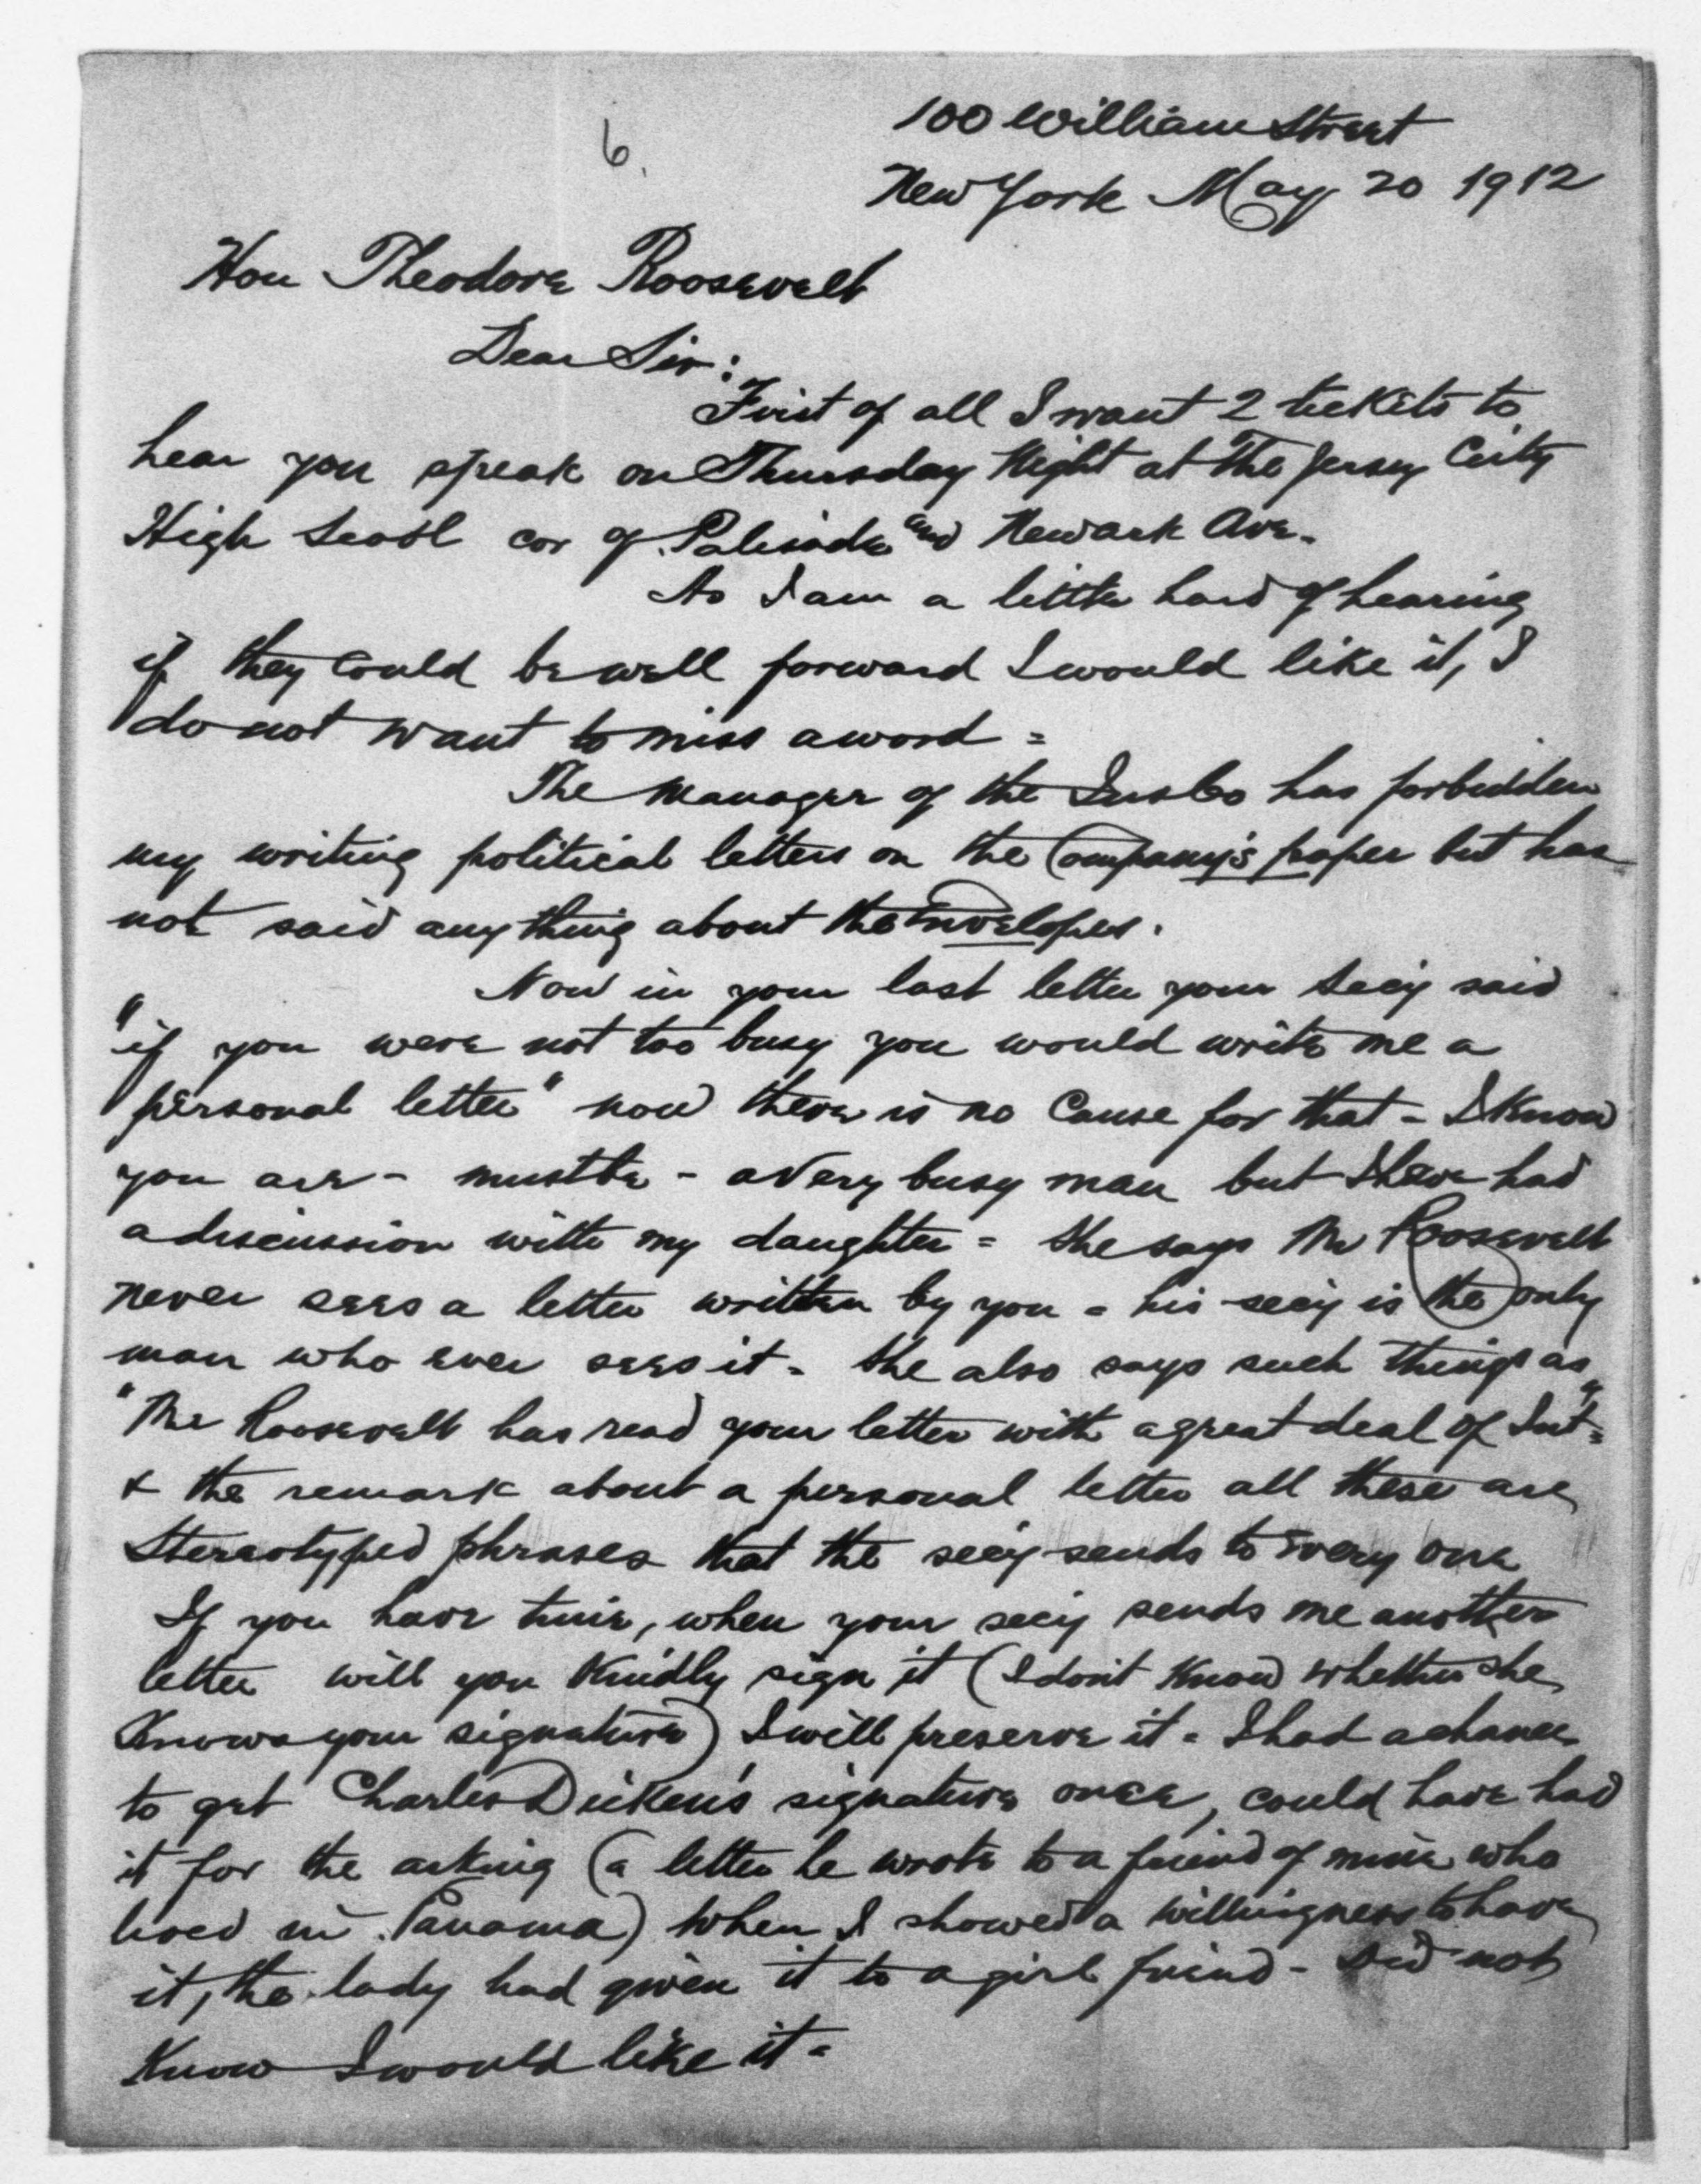 6.
100 William Street
New York May 20 1912
Hon Theodore Roosevelt
Dear Sir:
First of all I want 2 tickets to
hear you speak on Thursday Night at The Jersey City
High Scool cor of Palisade and Newark Ave.
As I am a little hard of hearing
if they could be well forward I would like it, I
do not want to miss a word =
The Manager of the Ins Co has forbidden
my writing political letters on the Company's paper but has
not said any thing about the Envelopes.
Now in your last letter your Secy said
"if you were not too busy you would write me a
personal letter" now there is no Cause for that - I Know
you are - must be - a Very busy man but I have had
a discussion with my daughter = She says Mr Roosevelt
never sees a letter written by you = his secy is the only
man who ever sees it = She also says such things as
"Mr Roosevelt has read your letter with a great deal of Int"=
& the remark about a personal letter all these are
Stereotyped phrases that the secy sends to every one
If you have time, when your secy sends me another
letter will you Kindly sign it (I don't Know whether she
Knows your signature) I will preserve it = I had a chance
to get Charles Dicken's signature once, could have had
it for the asking (a letter he wrote to a friend of mine who
lived in Panama) When I showed a willingness to have
it, the lady had given it to a girl friend - Did not
Know I would like it =